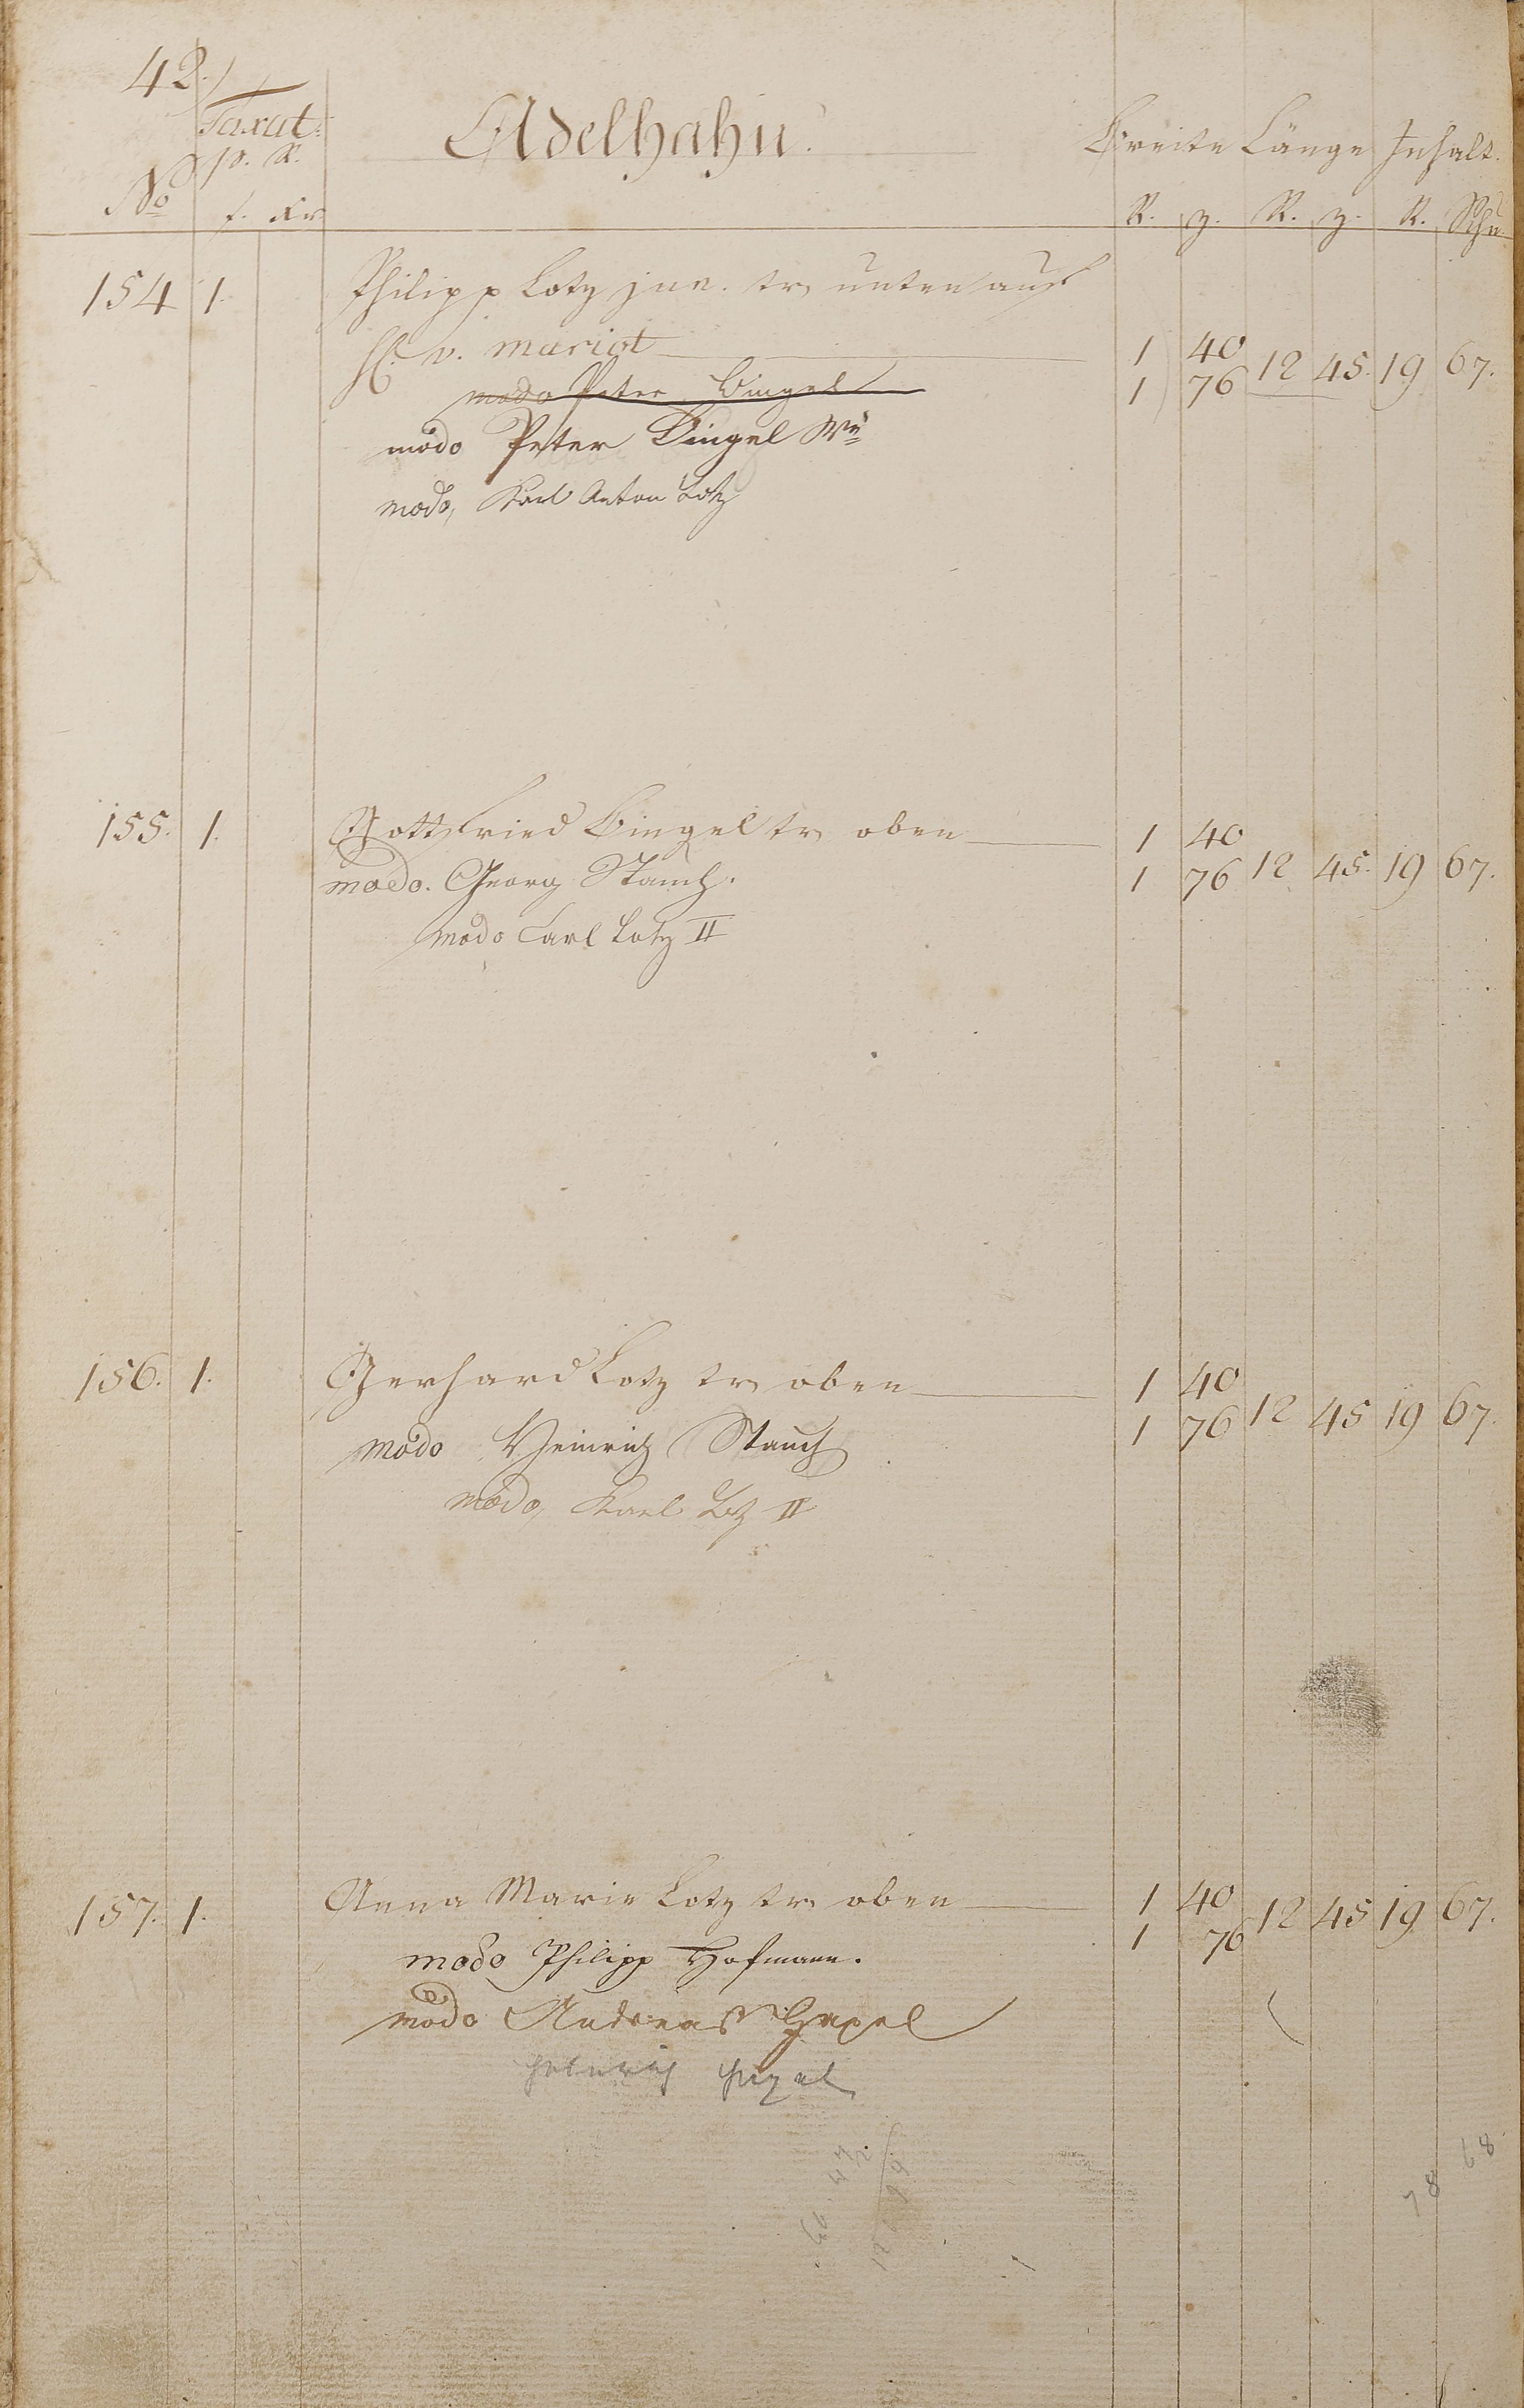 42.
Taxat:
p. R.
Adelhahn.
Breite Länge Inhalt.
No f. Kr R. z. R. z. R. Schu
154 1. Philipp Lotz jun. tr. unten auf
H. v. mariot 1 40 12 45. 19 67.
modo Peter Bingel 1 76
modo Peter Bingel Wb
modo, Karl Anton Lotz
155. 1. Gottfried Bingel tr. oben 1 40
modo. Georg Stauch. 1 76 12 45. 19 67.
modo Carl Lotz II
156. 1. Gerhard Lotz tr. oben 1 40
modo Heinrich Stauch 1 76 12 45 19 67.
modo, Karl Lotz II
157. 1. Anna Marie Lotz tr. oben 1 40 12 45 19 67.
modo Philipp Hofmann. 1 76
modo Andreas Hepel
Heinrich
78 68